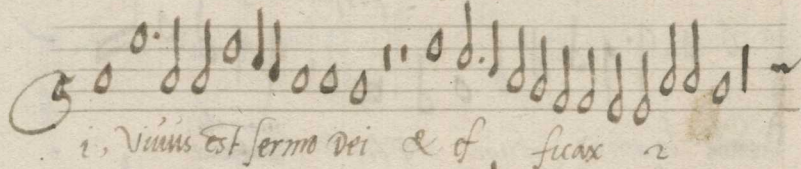 i, Viuus est sermo Dei & ef ficax 2